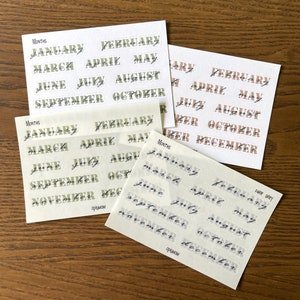 Months
JANUARY FEBRUARY
MARCH APRIL MAY
JUNE JULY AUGUST
SEPTEMBER OCTOBER
FEBRUARY
APRIL MAY
AUGUST
OCTOBER
DECEMBER
Months
JANUARY
MARCH APRIL
JUNE JULY AUGUST
SEPTEMBER OCTOBER
NOVEMBER DECEMBER
Months
January February
March April May
June July August
September October
November December